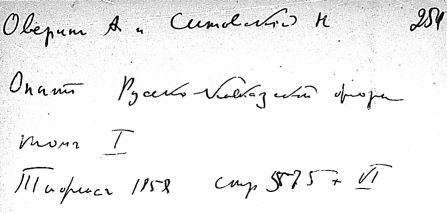 Оверин А и Ситовский Н 254
Опыт Русско-Кавказской флоры
томъ I
Тифлисъ 1858 стр 575 + VI